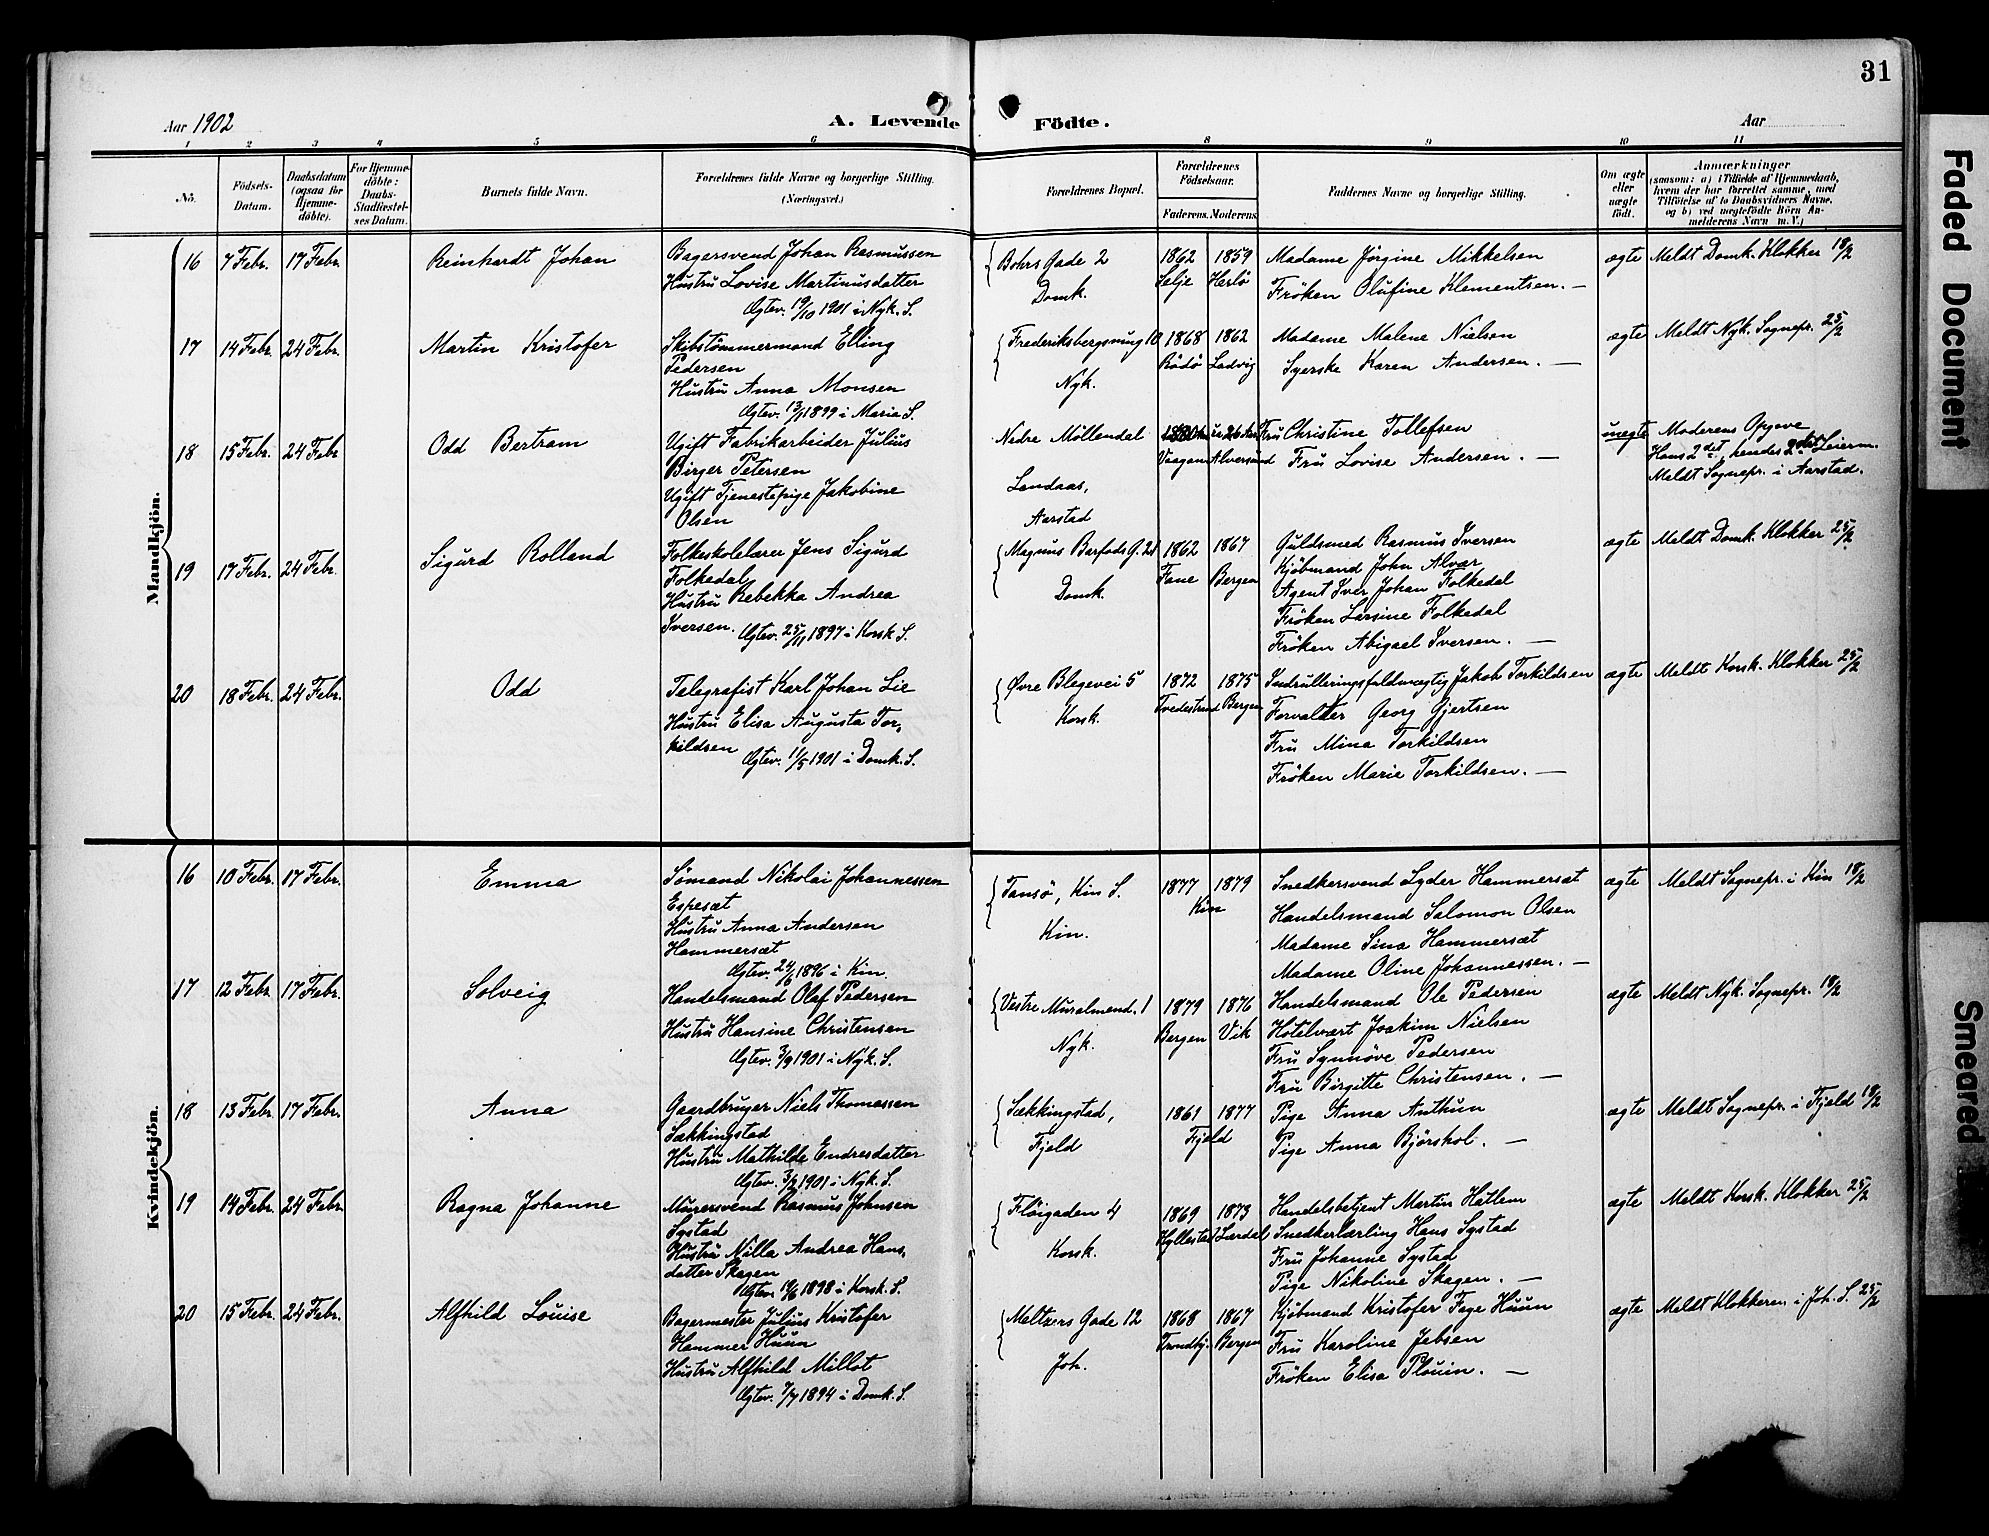 31
Aar 1902
A. Levende Födte.
Aar
1 2 3 4 5 6 8 9 10 11
No.
Födsels-Datum.
Daabsdatum (ogsaa for Hjemmedöbte).
For Hjemmedöbte: Daabs-Stadfæstelses Datum.
Barnets fulde Navn.
Forældrenes fulde Navne og borgerlige Stilling. (Næringsvei.)
Forældrenes Bopæl.
Forældrenes Födselsaar.
Faderens. Moderens.
Faddernes Navne og borgerlige Stilling.
Om ægte eller uægte födt.
Anmærkninger
(saasom: a) i Tilfælde af Hjemmedaab, hvem der har forrettet samme, med Tilföielse af to Daabsvidners Navne, og b) ved uægtefödte Börn Anmelderens Navn m. V.)
Mandkjön.
16 7 Febr. 17 Febr. Reinhardt Johan
Bagersvend Johan Rasmussen
Hustru Lovise Martinusdatter
Ægtev. 19/10 1901 i Nyk. S.
Bohrs Gade 2
Domk.
1862 Selje
1859 Herlö
Madame Jørgine Mikkelsen
Fröken Olufine Klementsen. —
ægte
Meldt Domk. Klokker 18/2
17 14 Febr. 24 Febr. Martin Kristofer
Skibstömmermand Elling
Pedersen
Hustru Anna Monsen
Ægtev. 13/1 1899 i Maria S.
Frederiksbergsmug 10
Nyk.
1868 Rödö
1862 Ladvig
Madame Malene Nielsen
Syerske Karen Andersen. —
ægte
Meldt Nyk. Sognepr. 25/2
18 15 Febr. 24 Febr Odd Bertram
Ugift Fabrikarbeider Julius
Birger Petersen
Ugift Tjenestepige Jakobine
Olsen
Nedre Möllendal
Landaas,
Aarstad
Vaagen
Alversund
Fru Christine Tollefsen
Fru Lovise Andersen. —
uægte
Moderens Opgave
Hans 2det, hendes 2det Leierm.
Meldt Sognepr. i Aarstad.
19 17 Febr. 24 Febr. Sigurd Rolland
Folkeskolelærer Jens Sigurd
Folkedal
Hustru Rebekka Andrea
Iversen. Ægtev. 25/11 1897 i Korsk. S.
Magnus Barfods G. 21
Domk.
1862 Fane
1867 Bergen
Guldsmed Rasmus Iversen
Kjöbmand John Alvær
Agent Iver Johan Folkedal
Fröken Larsine Folkedal
Fröken Abigael Iversen. —
ægte
Meldt Domk. Klokker 25/2
20 18 Febr. 24 Febr. Odd
Telegrafist Karl Johan Lie
Hustru Elisa Augusta Tor-
kildsen
Ægtev. 11/5 1901 i Domk. S.
Øvre Blegevei 5
Korsk.
1872 Tvedestrand
1875 Bergen
Indrulleringsfuldmægtig Jakob Torkildsen
Forvalter Georg Gjertsen
Fru Mina Torkildsen
Fröken Marie Torkildsen. —
ægte
Meldt Korsk. Klokker 25/2
Kvindekjön.
16 10 Febr. 17 Febr. Emma
Sömand Nikolai Johannessen
Espesæt
Hustru Anna Andersen
Hammersæt
Ægtev. 24/6 1896 i Kin.
Tansö, Kin S.
Kin.
1877 1879
Kin
Snedkersvend Lyder Hammersæt
Handelsmand Salomon Olsen
Madame Sina Hammersæt
Madame Oline Johannessen. —
ægte
Meldt Sognepr. i Kin 18/2
17 12 Febr. 17 Febr. Solveig
Handelsmand Olaf Pedersen
Hustru Hansine Christensen
Ægtev. 3/9 1901 i Nyk. S.
Vestre Muralmend. 1
Nyk.
1879 Bergen
1876 Vik
Handelsmand Ole Pedersen
Hotelvært Joakim Nielsen
Fru Synnöve Pedersen
Fru Birgitte Christensen. —
ægte
Meldt Nyk. Sognepr. 18/2
18 13 Febr. 17 Febr. Anna
Gaardbruger Niels Thomassen
Sækkingstad
Hustru Mathilde Endresdatter
Ægtev. 3/2 1901 i Nyk. S.
Sækkingstad,
Fjeld
1861 1877
Fjeld
Pige Anna Anthun
Pige Anna Björshol. —
ægte
Meldt Sognepr. i Fjeld 18/2
19 14 Febr. 24 Febr. Ragna Johanne
Murersvend Rasmus Johnsen
Systad
Hustru Nilla Andrea Hans-
datter Skagen
Ægtev. 19/6 1898 i Korsk. S.
Flöigaden 4
Korsk.
1869 Hyllestad
1873 Lærdal
Handelsbetjent Martin Hatlem
Snedkerlærling Hans Systad
Fru Johanne Systad
Pige Nikoline Skagen. —
ægte
Meldt Korsk. Klokker 25/2
20 15 Febr. 24 Febr. Alfhild Louise
Bagermester Julius Kristofer
Hammer Huun
Hustru Alfhild Millot
Ægtev. 7/7 1894 i Domk. S.
Meltzers Gade 12
Joh.
1868 Trondhj.
1867 Bergen
Kjöbmand Kristofer Fage Huun
Fru Karoline Jebsen
Fröken Elisa Plouin. —
ægte
Meldt Klokkeren i Joh. S. 25/2
Faded Document
Smeared